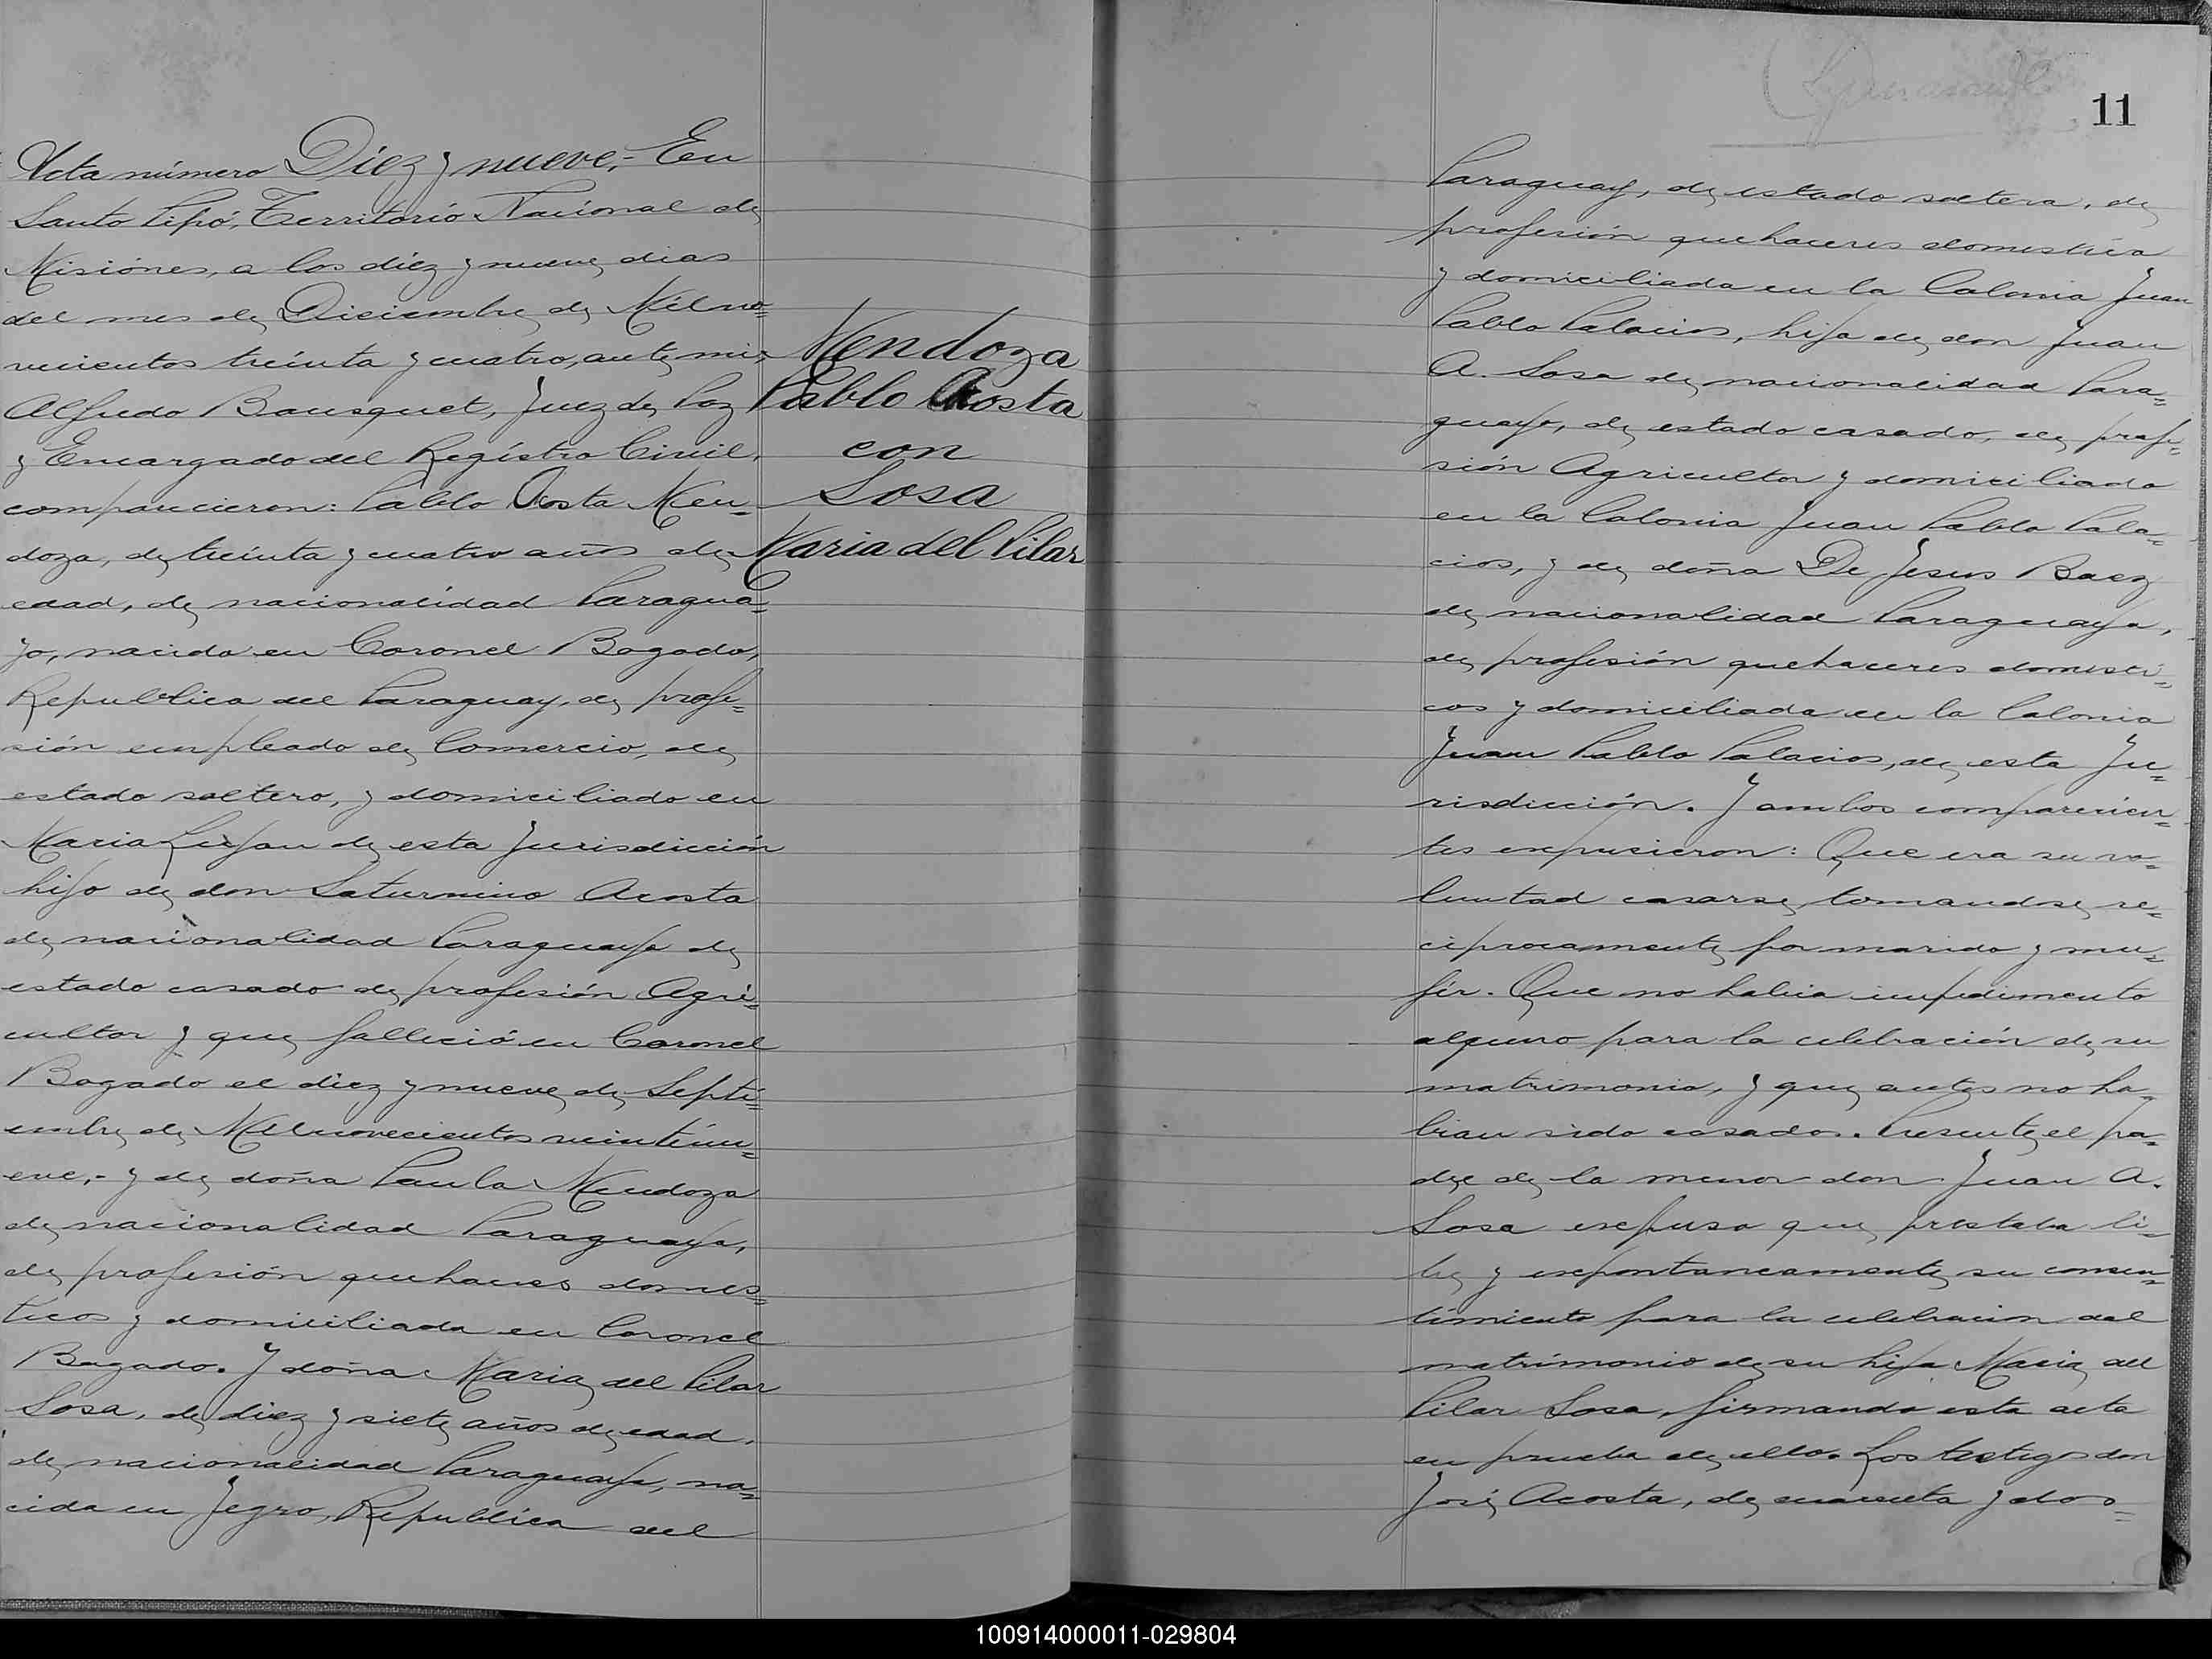 Acta número Diez y nueve,- En
Santo Pipó, Territorio Nacional de
Misiónes, a los diéz y nueve dias
del mes de Diciembre de Mil no=
vecientos treinta y cuatro, ante mi,
Alfredo Bousquet, Juez de Paz
y Encargado del Registro Civil,
comparecieron: Pablo Acosta Men=
doza, de treinta y cuatro años de
edad, de nacionalidad Paragua=
yo, nacido en Coronel Bogado,
Republica del Paraguay, de profe=
sión empleado de Comercio, de
estado soltero, y domiciliado en
Maria Lujan de esta Jurisdicción
hijo de don Saturnino Acosta
de nacionalidad Paraguaya de
estado casado de profesión Agri=
cultor y que falleció en Coronel
Bogado el diez y nueve de Septi=
embre de Mil novecientos veintinu=
eve,- y de doña Paula Mendoza
de nacionalidad Paraguaya,
de profesión quehaceres domes=
ticos y domiciliada en Coronel
Bogado. Y doña Maria del Pilar
Sosa, de diez y siete años de edad,
de nacionalidad Paraguaya, na=
cida en Jegro, Republica del
Mendoza
Pablo Acosta
con
Sosa
Maria del Pilar
11
Paraguay, de estado soltera, de
profesión quehaceres domestica
y domiciliada en la Colonia Juan
Pablo Palacios, hija de don Juan
A. Sosa de nacionalidad Para=
guayo, de estado casado, de profe=
sión Agricultor y domiciliado
en la Colonia Juan Pablo Pala=
cios, y de doña De Jesus Baez
de nacionalidad Paraguaya,
de profesión quehaceres domesti=
cos y domiciliada en la Colonia
Juan Pablo Palacios, de esta Ju=
risdicción. Y ambos comparecien=
tes expusieron: Que era su vo=
luntad casarse, tomandose re=
ciprocamente por marido y mu=
jér. Que no habia impedimento
alguno para la celebración de su
matrimonio, y que antes no ha=
bian sido casados. Presente el pa=
dre de la menor don Juan A.
Sosa expuso que prestaba li=
bre y expontaneamente su consen=
timiento para la celebracion del
matrimonio de su hija Maria del
Pilar Sosa, firmando esta acta
en prueba de ello. Los testigos don
José Acosta, de cuarenta y dos=
100914000011-029804